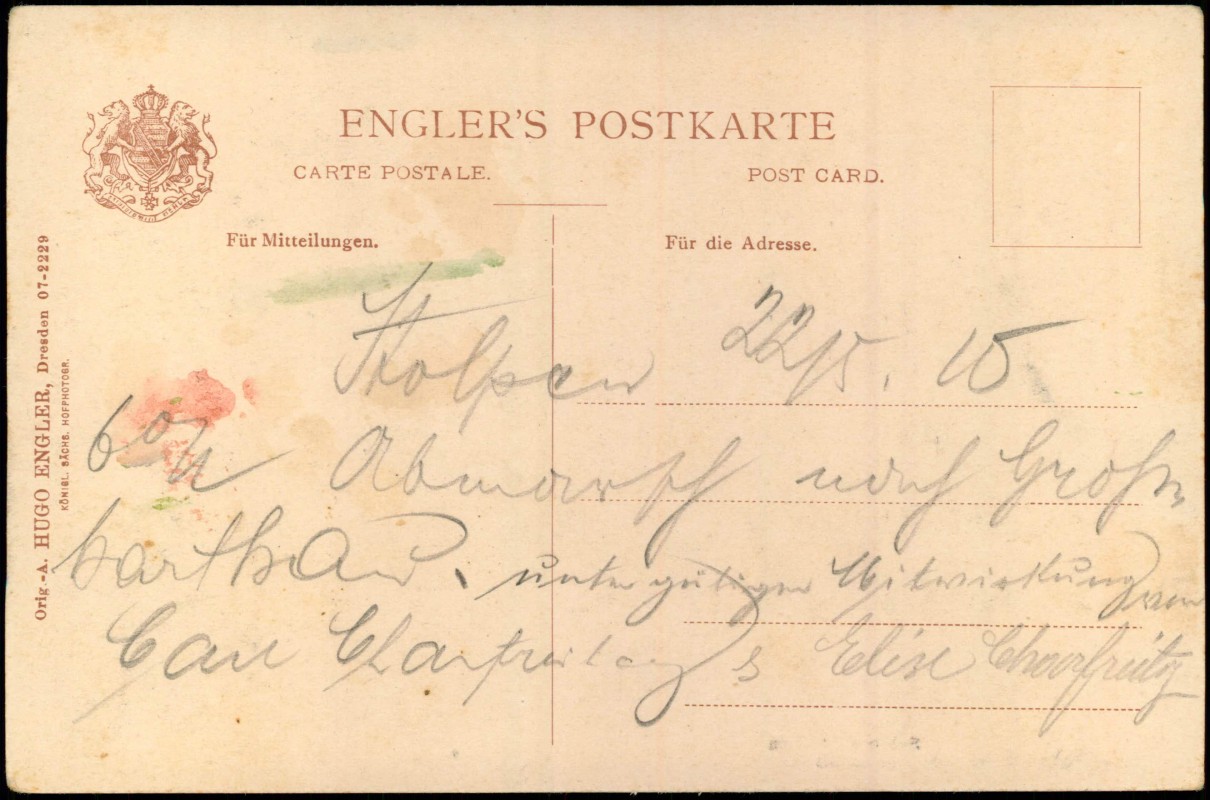 ENGLER'S POSTKARTE
CARTE POSTALE.
POST CARD.
Für Mitteilungen.
Für die Adresse.
Orig.-A. HUGO ENGLER, Dresden 07-2229
KÖNIGL. SÄCHS. HOFPHOTOGR.
Stolpen 22/5. 15
Abmarsch nach Groß
harthau. unter gütiger Mitwirkung von
Charfreitag & Elise